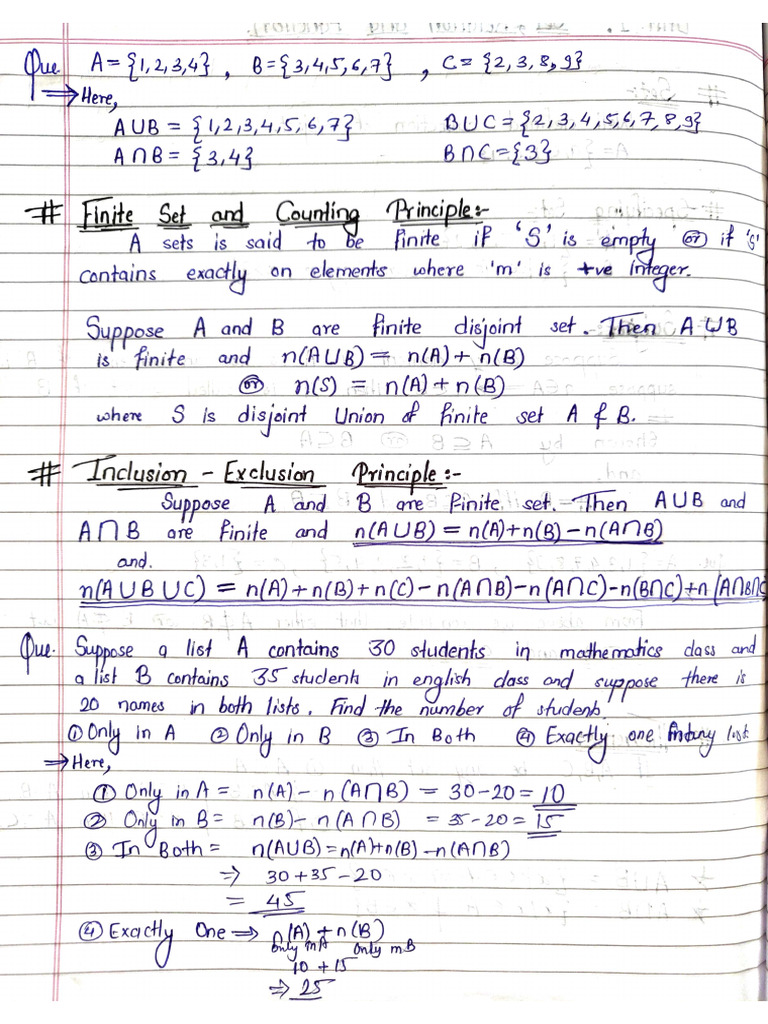 Que. A = {1,2,3,4} , B = {3,4,5,6,7} , C = {2,3,8,9}
⇒ Here,
A∪B = {1,2,3,4,5,6,7} B∪C = {2,3,4,5,6,7,8,9}
A∩B = {3,4} B∩C = {3}
# Finite Set and Counting Principle:-
A sets is said to be finite if 'S' is empty or if 'S'
contains exactly on elements where 'm' is +ve integer.
Suppose A and B are finite disjoint set. Then A∪B
is finite and n(A∪B) = n(A) + n(B)
or n(S) = n(A) + n(B)
where S is disjoint Union of finite set A & B.
# Inclusion - Exclusion Principle:-
Suppose A and B are finite set. Then A∪B and
A∩B are finite and n(A∪B) = n(A)+n(B) – n(A∩B)
and.
n(A∪B∪C) = n(A)+n(B)+n(C)–n(A∩B)–n(A∩C)–n(B∩C)+n(A∩B∩C
Que. Suppose a list A contains 30 students in mathematics class and
a list B contains 35 students in english class and suppose there is
20 names in both lists. Find the number of students
① Only in A ② Only in B ③ In Both ④ Exactly one list
⇒ Here,
① Only in A = n(A) – n(A∩B) = 30–20 = 10
② Only in B = n(B) – n(A∩B) = 35–20 = 15
③ In Both = n(A∪B) = n(A)+n(B) – n(A∩B)
⇒ 30+35–20
= 45
④ Exactly One ⇒ n(A) + n(B)
Only mA Only mB
10 + 15
⇒ 25